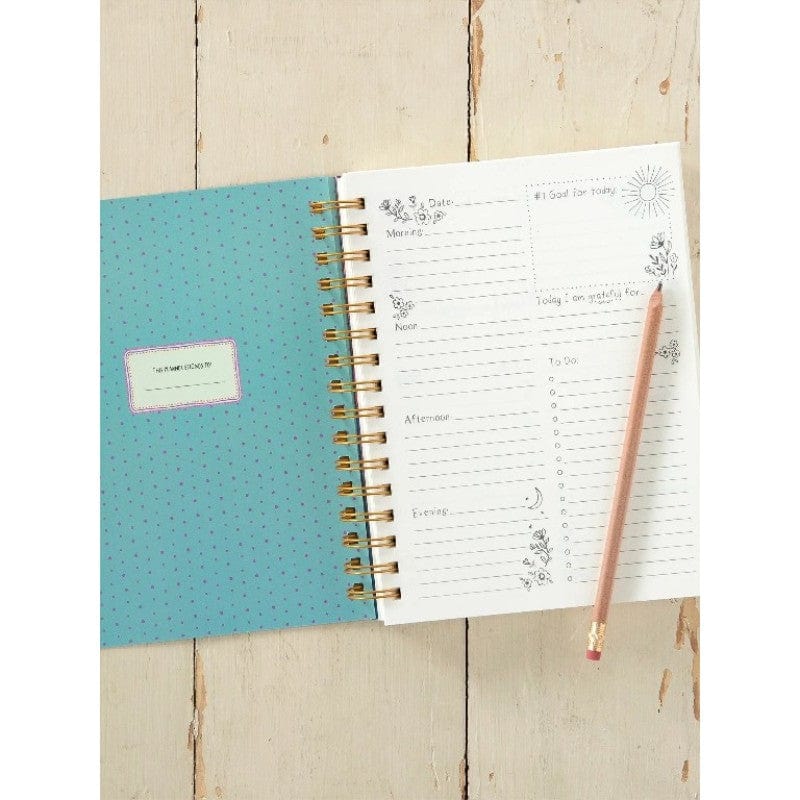 THIS PLANNER BELONGS TO:
Date:
#1 Goal for today:
Morning:
Today I am grateful for:
Noon:
To Do:
Afternoon:
Evening: